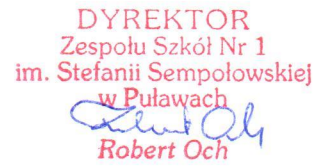 DYREKTOR
Zespołu Szkół Nr 1
im. Stefanii Sempołowskiej
w Puławach
Robert Och
Robert Och